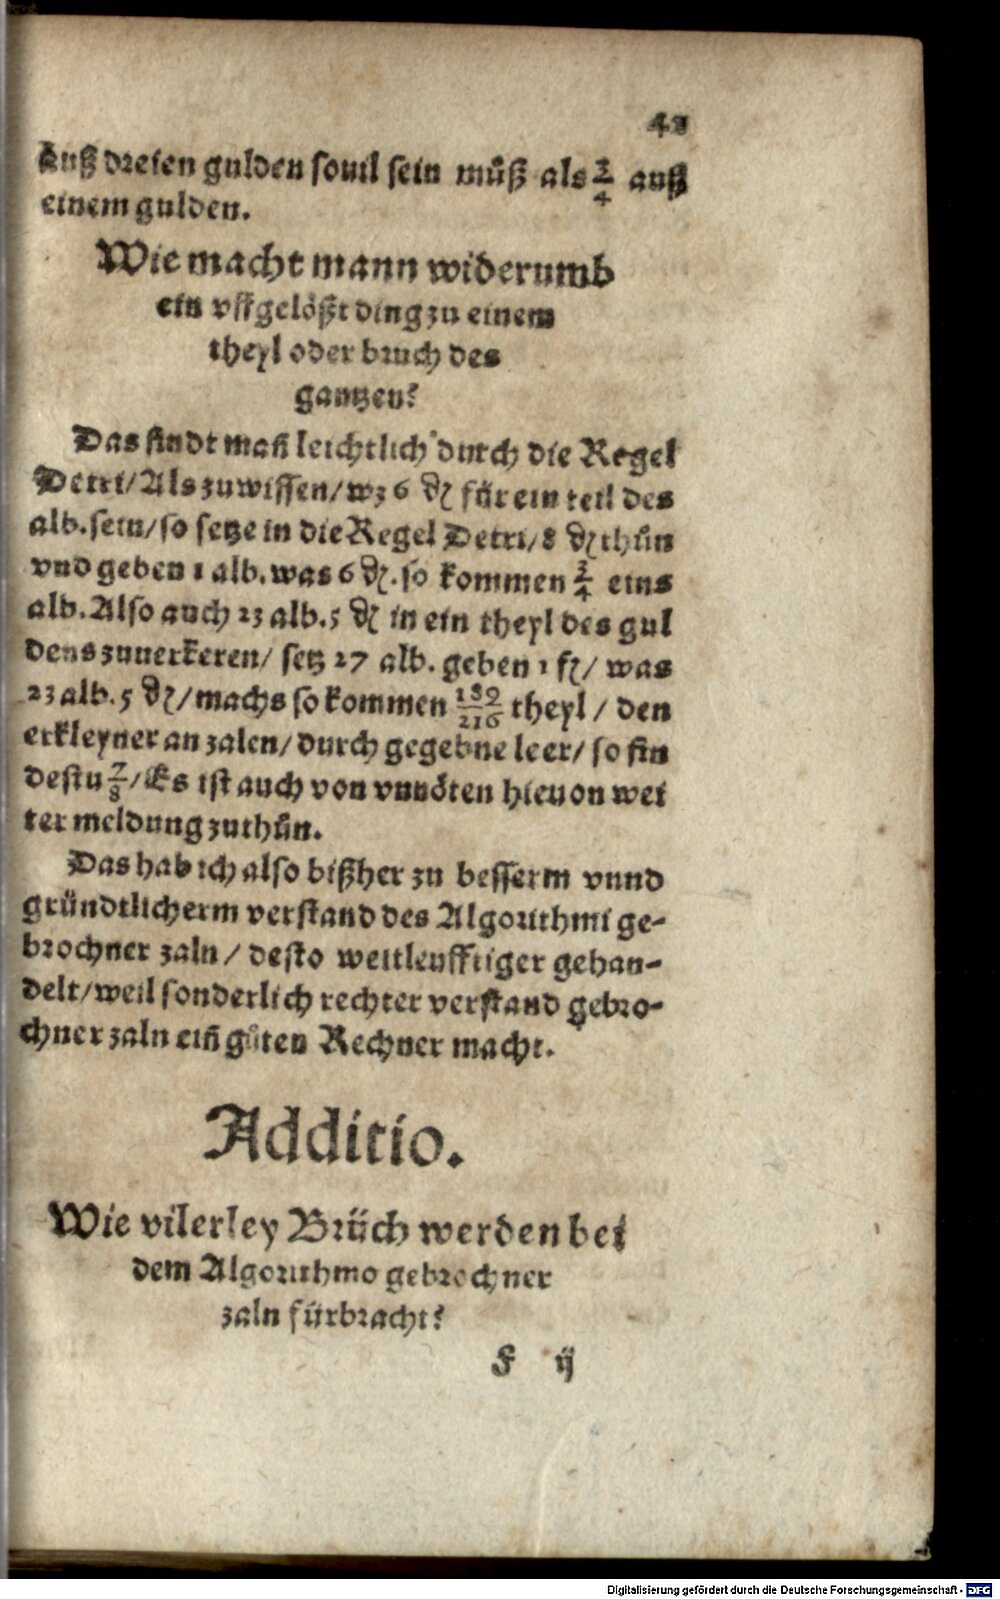 42
auß dreien gulden souil sein můß als 3/4 auß
einem gulden.
Wie macht mann widerumb
ein vffgelößt ding zu einem
theyl oder bruch des
gantzen?
Das findt mañ leichtlich durch die Regel
Detri/Als zuwissen/wz 6 ₰ für ein teil des
alb. sein/so setze in die Regel Detri/8 ₰ thůn
vnd geben 1 alb. was 6 ₰. so kommen 3/4 eins
alb. Also auch 23 alb. 5 ₰ in ein theyl des gul
dens zuuerkeren/ setz 27 alb. geben 1 fl/ was
23 alb. 5 ₰/machs so kommen 189/216 theyl / den
erkleyner an zalen/durch gegebne leer/so fin
destu 7/8/Es ist auch von vnnöten hieuon wei
ter meldung zuthůn.
Das hab ich also bißher zu besserm vnnd
gründtlicherm verstand des Algorithmi ge-
brochner zaln / desto weitleufftiger gehan-
delt/weil sonderlich rechter verstand gebro-
chner zaln eiñ gůten Rechner macht.
Additio.
Wie vilerley Brüch werden bei
dem Algorithmo gebrochner
zaln fürbracht?
F ij
Digitalisierung gefördert durch die Deutsche Forschungsgemeinschaft - DFG